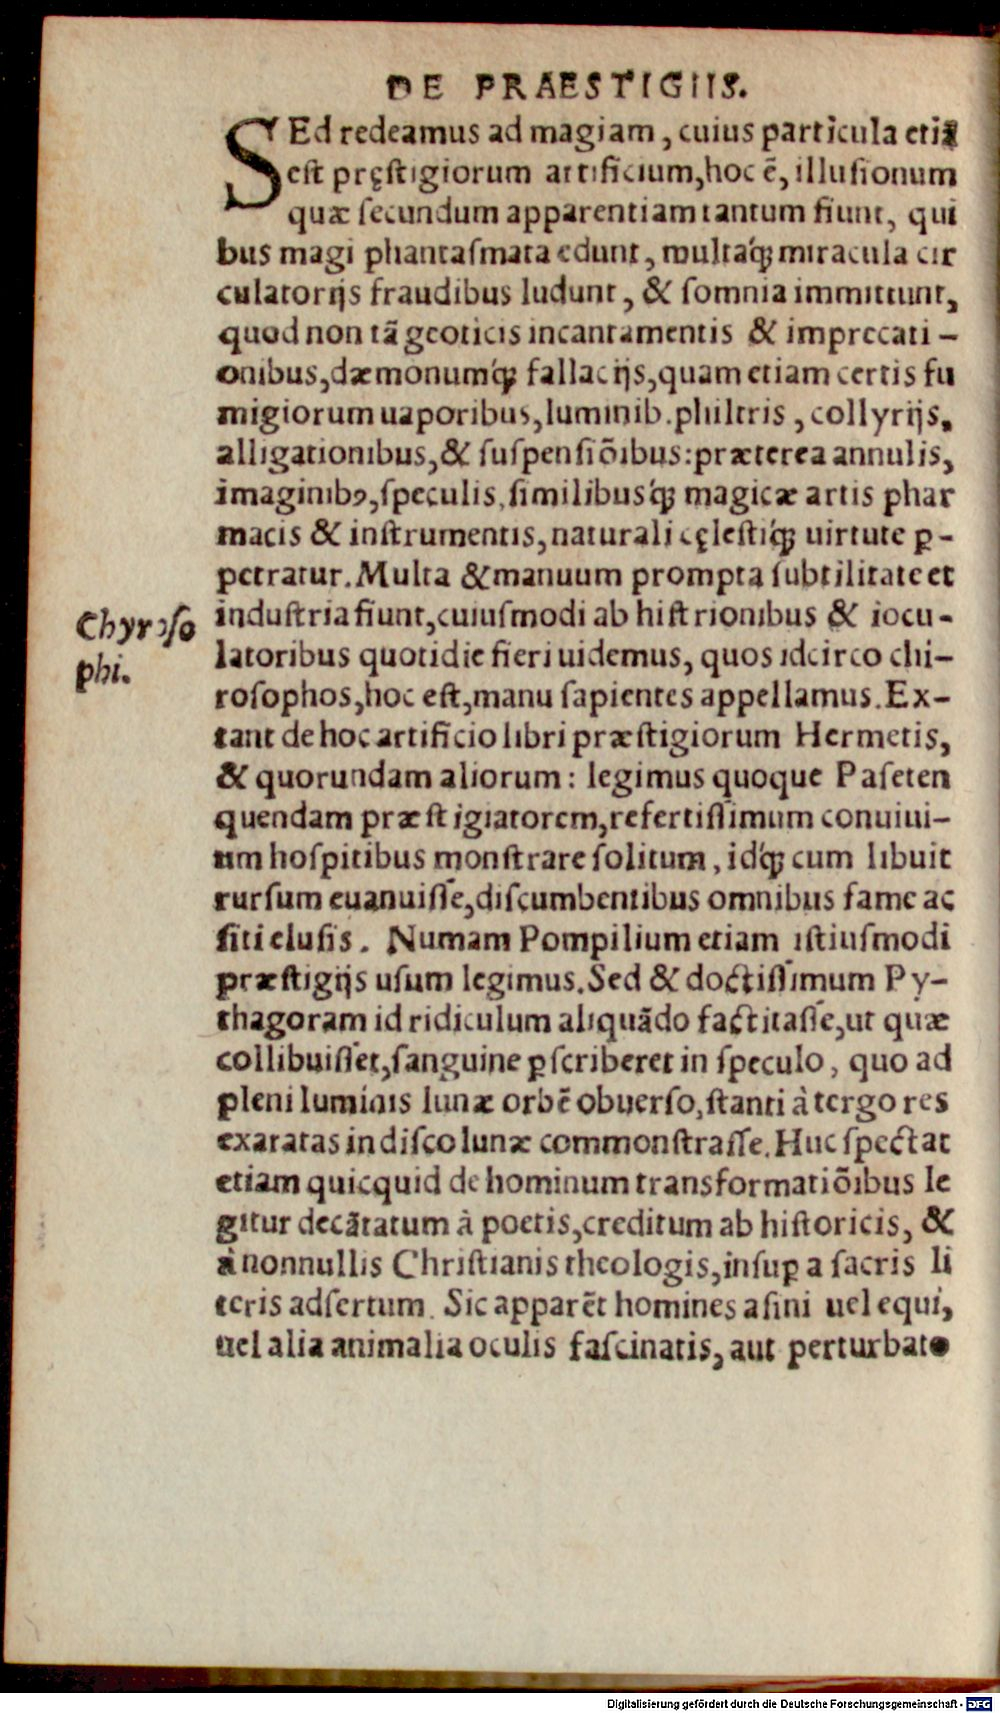 DE PRAESTIGIIS.
SEd redeamus ad magiam, cuius particula etiã
est pręstigiorum artificium, hoc ē, illusionum
quæ secundum apparentiam tantum fiunt, qui
bus magi phantasmata edunt, multaq́ꝫ miracula cir
culatorijs fraudibus ludunt, & somnia immittunt,
quod non tã geoticis incantamentis & imprecati-
onibus, dæmonumq́ꝫ fallacijs, quam etiam certis fu
migiorum uaporibus, luminib. philtris, collyrijs,
alligationibus, & suspensiõibus: præterea annulis,
imaginibꝰ, speculis, similibusq́ꝫ magicæ artis phar
macis & instrumentis, naturali cęlestiq́ꝫ uirtute ꝑ-
petratur. Multa & manuum prompta subtilitate et
industria fiunt, cuiusmodi ab histrionibus & iocu-
Chyroso
phi.
latoribus quotidie fieri uidemus, quos idcirco chi-
rosophos, hoc est, manu sapientes appellamus. Ex-
tant de hoc artificio libri præstigiorum Hermetis,
& quorundam aliorum: legimus quoque Paseten
quendam præstigiatorem, refertissimum conuiui-
um hospitibus monstrare solitum, idq́ꝫ cum libuit
rursum euanuisse, discumbentibus omnibus fame ac
siti elusis. Numam Pompilium etiam istiusmodi
præstigijs usum legimus. Sed & doctissimum Py-
thagoram id ridiculum aliquãdo factitasse, ut quæ
collibuisset, sanguine ꝑscriberet in speculo, quo ad
pleni luminis lunæ orbẽ obuerso, stanti à tergo res
exaratas in disco lunæ commonstrasse. Huc spectat
etiam quicquid de hominum transformatiõibus le
gitur decãtatum à poetis, creditum ab historicis, &
à nonnullis Christianis theologis, insuꝑ a sacris li
teris adsertum. Sic apparẽt homines asini uel equi,
uel alia animalia oculis fascinatis, aut perturbato
Digitalisierung gefördert durch die Deutsche Forschungsgemeinschaft - DFG